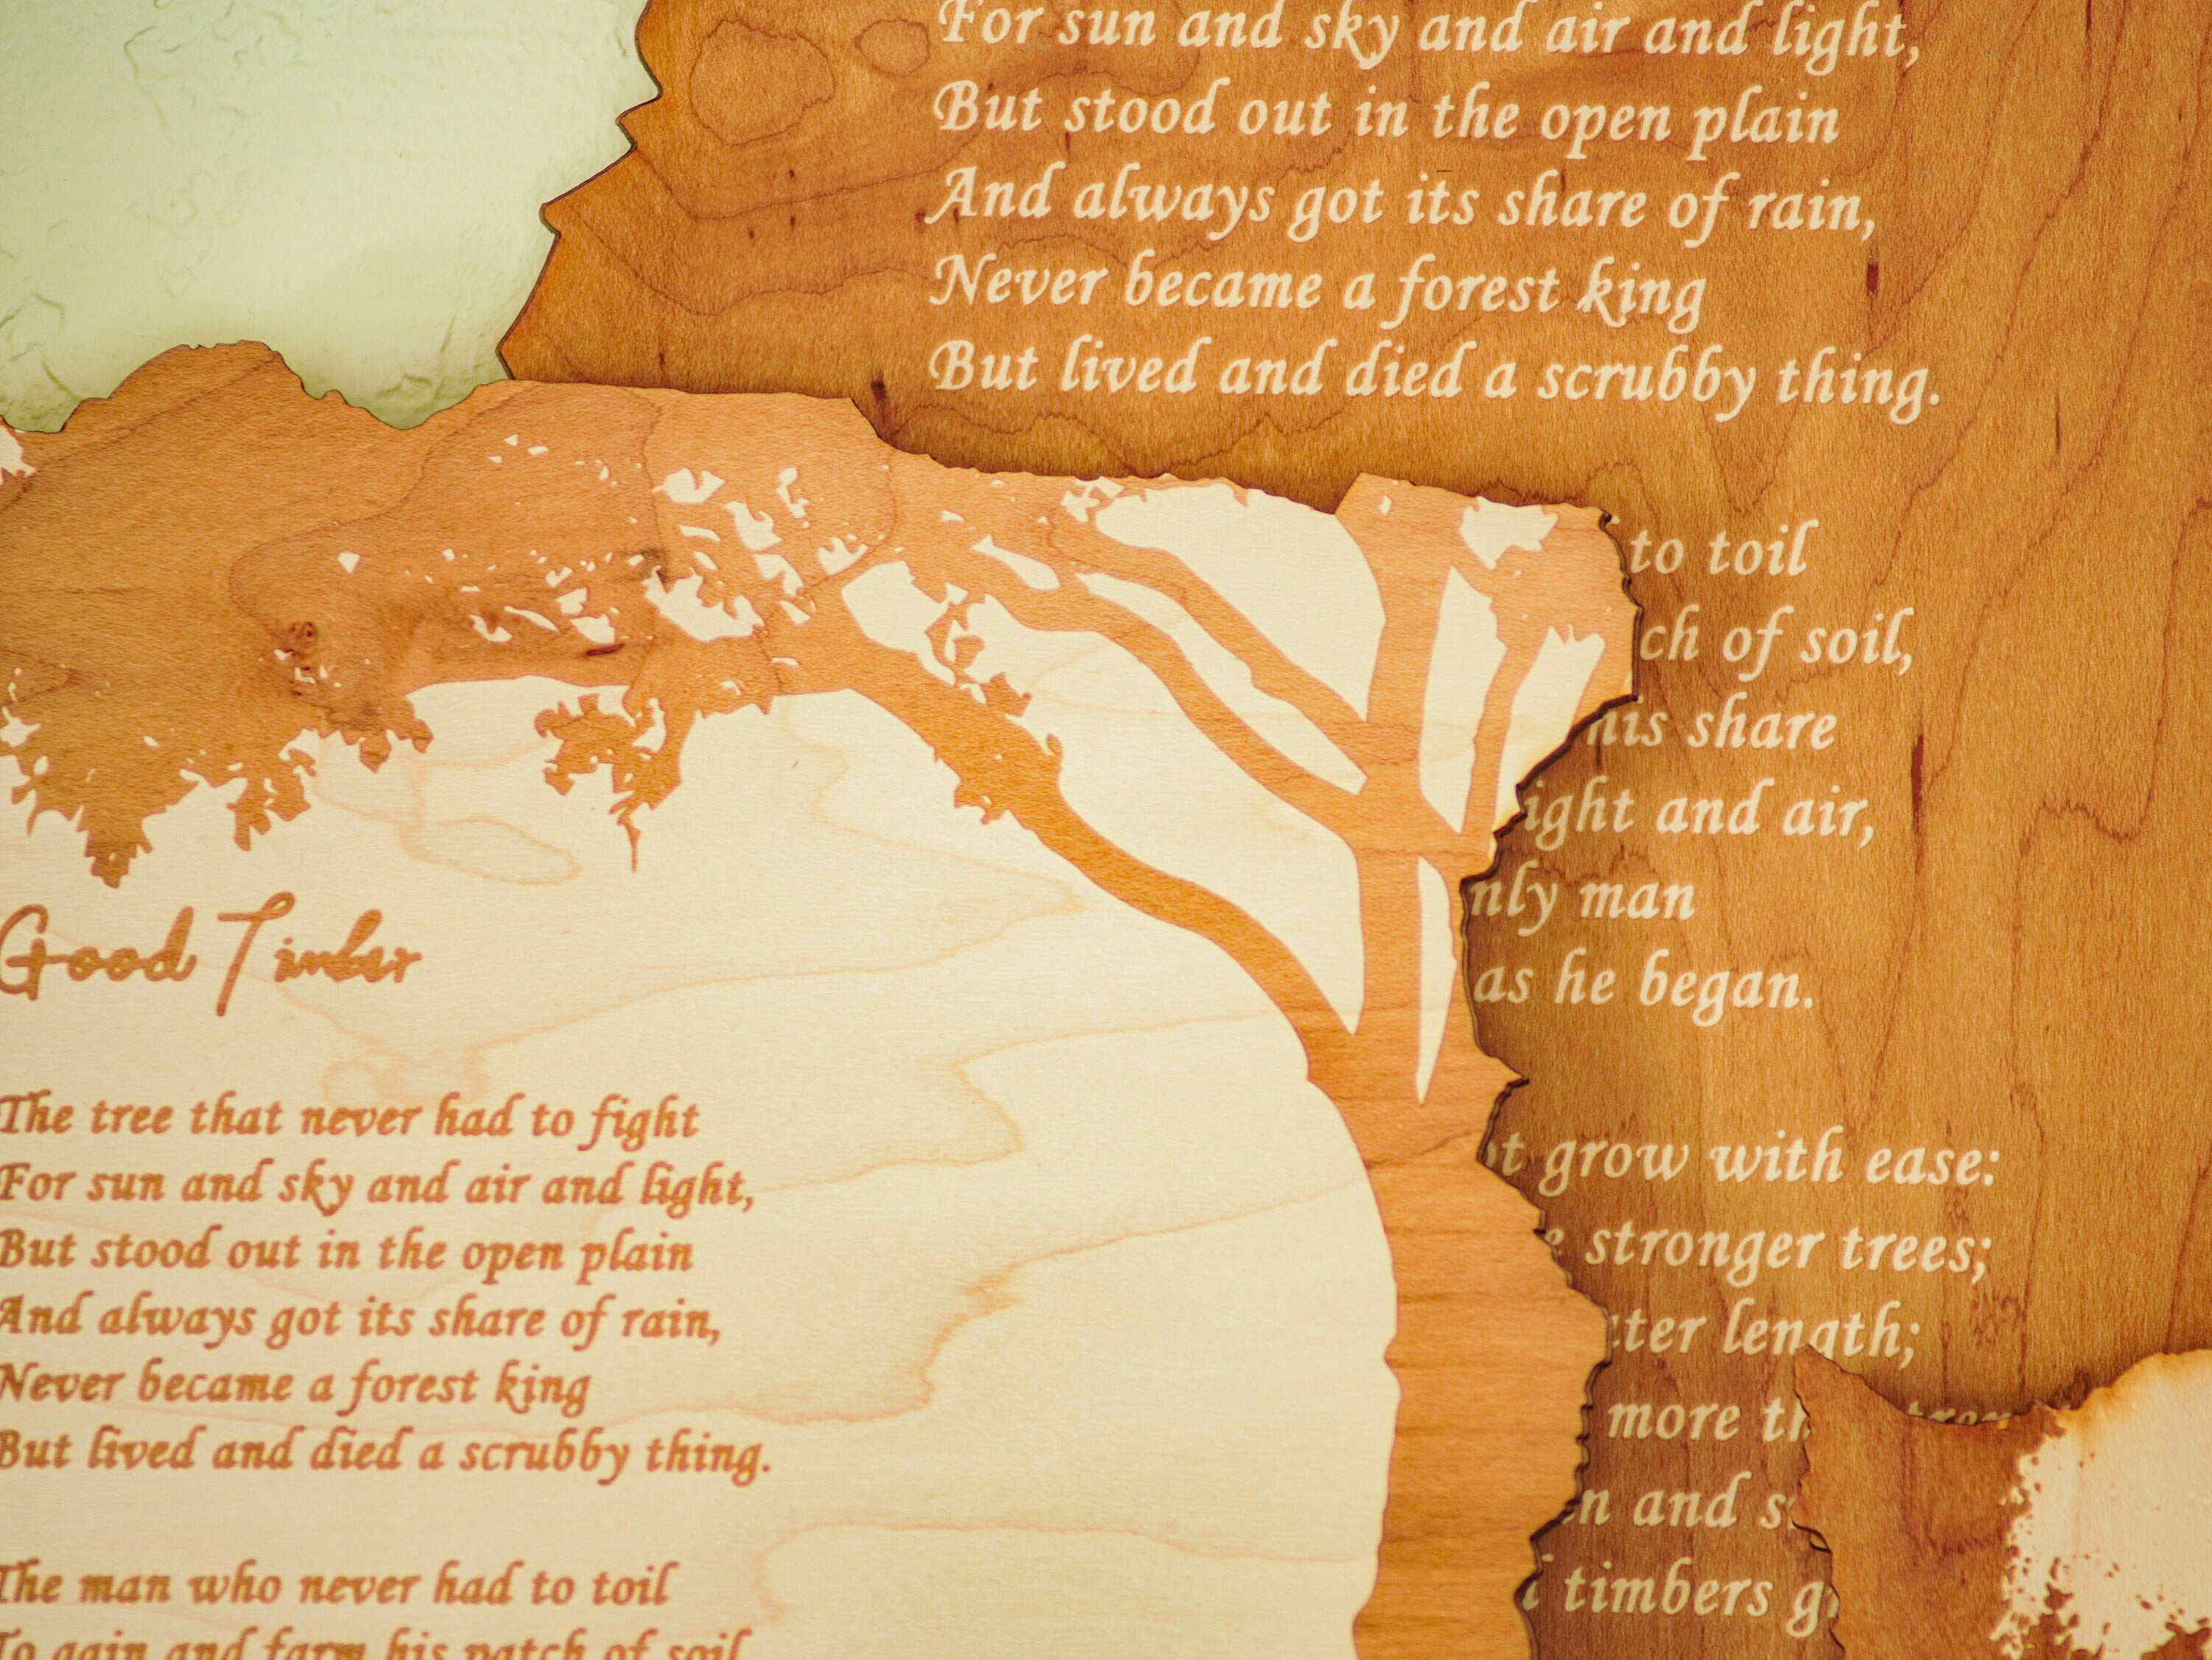 For sun and sky and air and light,
But stood out in the open plain
And always got its share of rain,
Never became a forest king
But lived and died a scrubby thing.
to toil
ch of soil,
his share
ight and air,
nly man
as he began.
t grow with ease:
e stronger trees;
ter length;
more th
n and s
timbers g
Good Timber
The tree that never had to fight
For sun and sky and air and light,
But stood out in the open plain
And always got its share of rain,
Never became a forest king
But lived and died a scrubby thing.
The man who never had to toil
To gain and farm his patch of soil